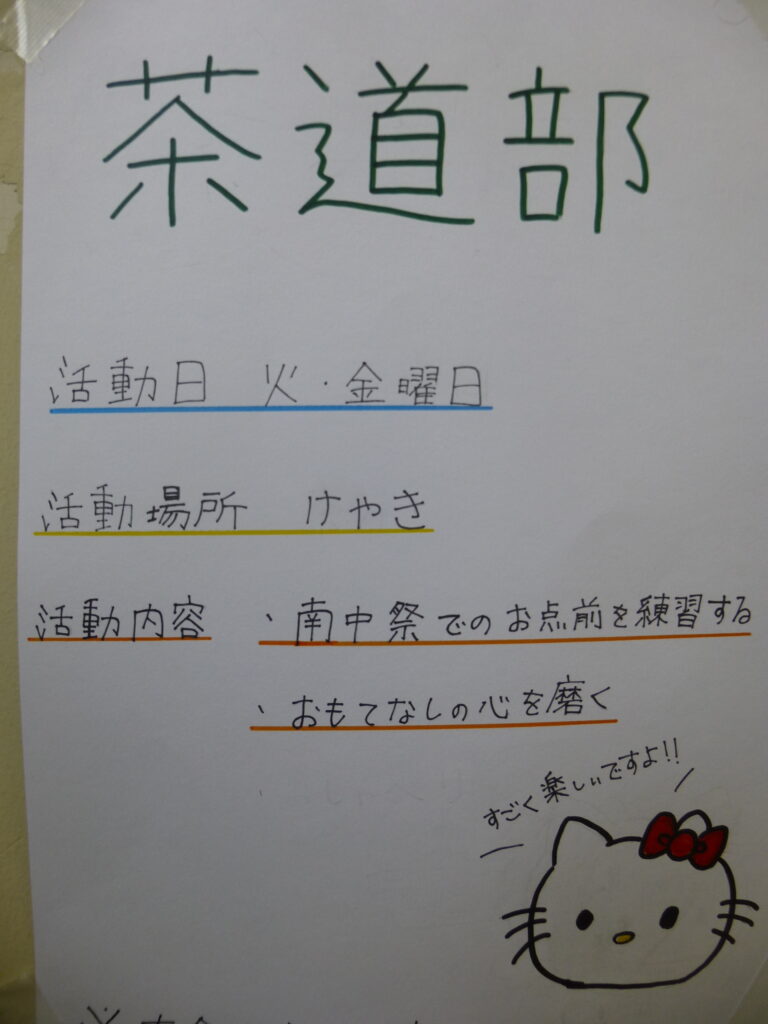 茶道部
活動日 火・金曜日
活動場所 けやき
活動内容 ・南中祭でのお点前を練習する
・おもてなしの心を磨く
すごく楽しいですよ!!